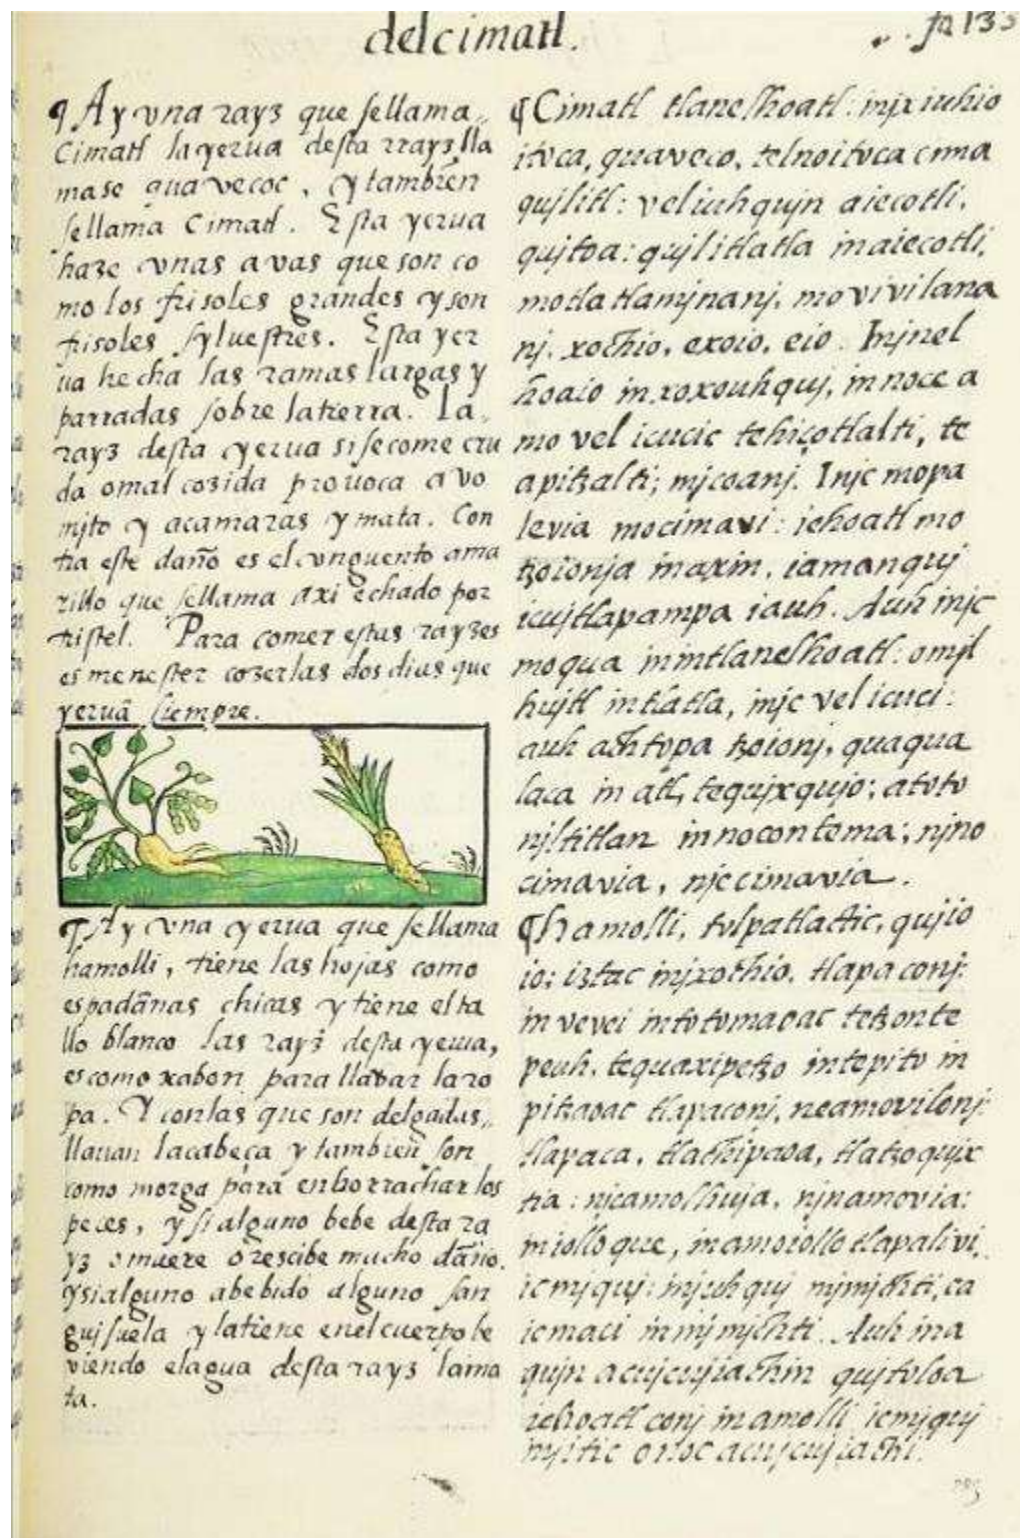 del cimatl.
fo 133
¶ Ay vna rayz que sellama
Cimatl la yerua desta rrayz lla
mase quavecoc, y tambien
sellama Cimatl. Esta yerua
haze vnas avas que son co
mo los frisoles grandes y son
frisoles syluestres. Esta yer
ua hecha las ramas largas y
parradas sobre latierra. La
rayz desta yerua si secome cru
da omal cozida prouoca avo
mito y acamaras y mata. Con
tra este daño es el vnguento ama
rillo que sellama axi echado por
tristel. Para comer estas rayzes
es menester cozerlas dos dias que
yeruā siempre.
¶ Ay vna yerua que sellama
hamolli, tiene las hojas como
espadañas chicas y tiene el ta
llo blanco las rayz desta yerua,
es como xabon para llabar laro
pa. Y conlas que son delgadas,
llauan lacabeça y tambien son
como morga para enborrachar los
peces, y si alguno bebe desta ra
yz o muere o rescibe mucho daño.
ysialguno abebido alguno san
guisuela y latiene enel cuerpo be
viendo elagua desta rayz lama
ta.
¶ Cimatl tlanelhoatl: injx iuhio
itoca, quaveco, telnoitoca cima
quilitl: veliuhqujn aiecotli,
qujtoa: qujlitlatla inaiecotli,
motlatlamjnanj, movivilana
nj, xochio, exoio, eio. Injnel
hoaio in xoxouhquj, innoce a
mo vel icucic tehiçotlalti, te
apitzalti; mjcoanj. Injc mopa
levia mocimavi: iehoatl mo
tzoionja inaxin, iamanquj
icujtlapampa iauh. Auh injc
moqua inintlanelhoatl: omjl
hujtl intlatla, injc vel icuci:
auh achtopa tzoionj, quaqua
laca in atl, tequjxqujo; atoto
njltitlan in nocontema; njno
cimavia, njccimavia.
¶ hamolli, tolpatlactic, qujio
io; iztac injxochio, tlapaconj:
in vevei intotomaoac tetzonte
peuh, tequaxipetzo intepito in
pitzaoac tlapaconj, neamovilonj:
tlapaca, tlachipaoa, tlatzoqujx
tia: njcamolhuja, njnamovia:
miolloque, inamoiollo tlapalivi,
icmjquj: injuhquj njmjchti, ca
icmaci innjmjchti. Auh ina
qujn acujcujiachin qujtoloa
iehoatl conj inamolli icmjquj
njtic onoc acujcujiachi.